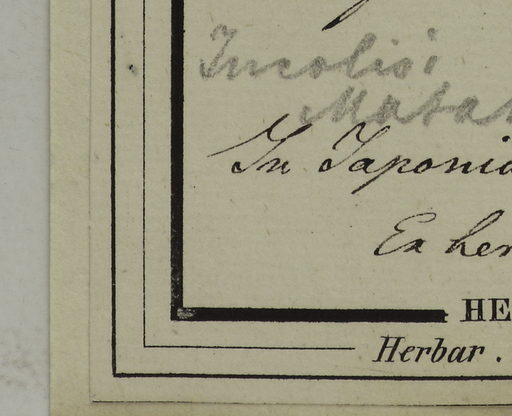 Incolis:
Matak
In Japonia
Ex her
HE
Herbar.